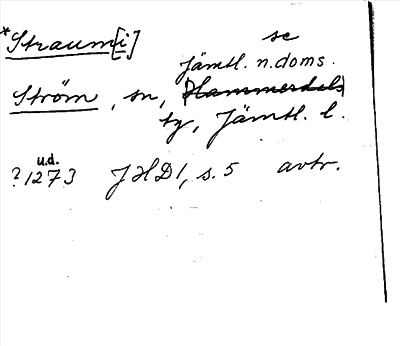 *Straum[i] se
Jämtl. n. doms.
Ström, sn, (Hammerdals)
tg, Jämtl. l.
u.d.
?1273 JHD 1, s. 5 avtr.